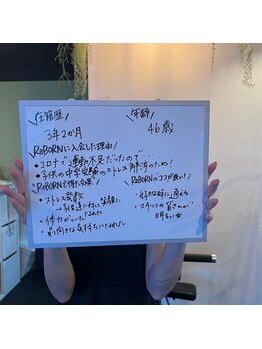 \在籍歴/
3年2か月
\年齢/
46歳
\ReBORNに入会した理由/
・コロナで運動不足だったので…
・子供の中学受験のストレス解消のため!
\ReBORNで得た効果/
・ストレス発散
・体力がついた
・前向きな気持ちに
\ReBORNのココが良い!/
・好きな時に通える
・スタッフの皆さんが
明るい